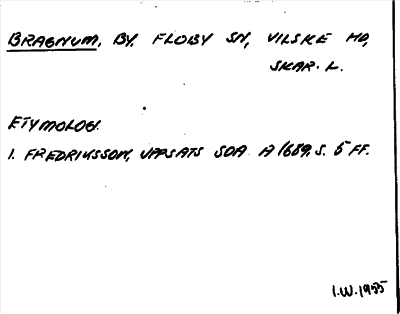 BRAGNUM, BY. FLOBY SN, VILSKE HD,
SKAR. L.
ETYMOLOGI.
I. FREDRIKSSON, UPPSATS SOA A 1689, S. 5 FF.
I.W. 1955